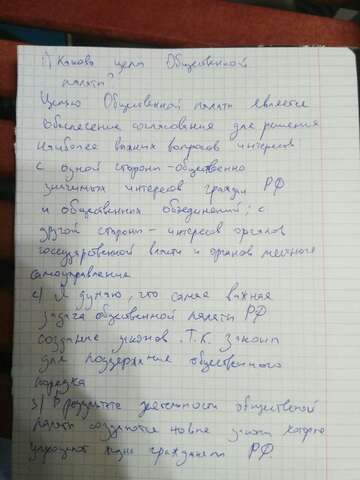 1) Какова цель Общественной
палаты?
Целью Общественной палаты является
обеспесение согласования для решения
наиболее важных вопросов интересов:
с одной стороны - общественно
значимых интересов граждан РФ
и общественных объединений; с
другой стороны - интересов органов
государственной власти и органов местного
самоуправление
2) Я думаю, что самое важная
задача общественной палаты РФ
создание законов. Т.к. законы
для поддержание общественного
порядка
3) В результате деятельности общественой
палаты создаются новые законы которые
упрощают жизнь гражданам РФ.